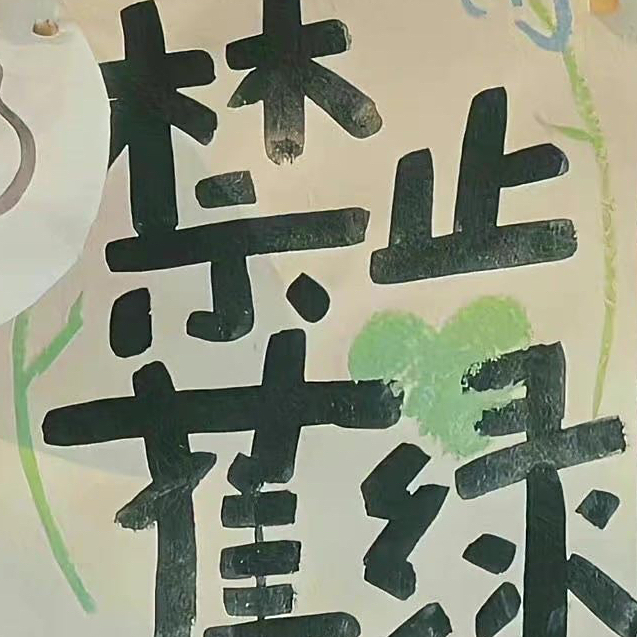 禁止
蕉绿